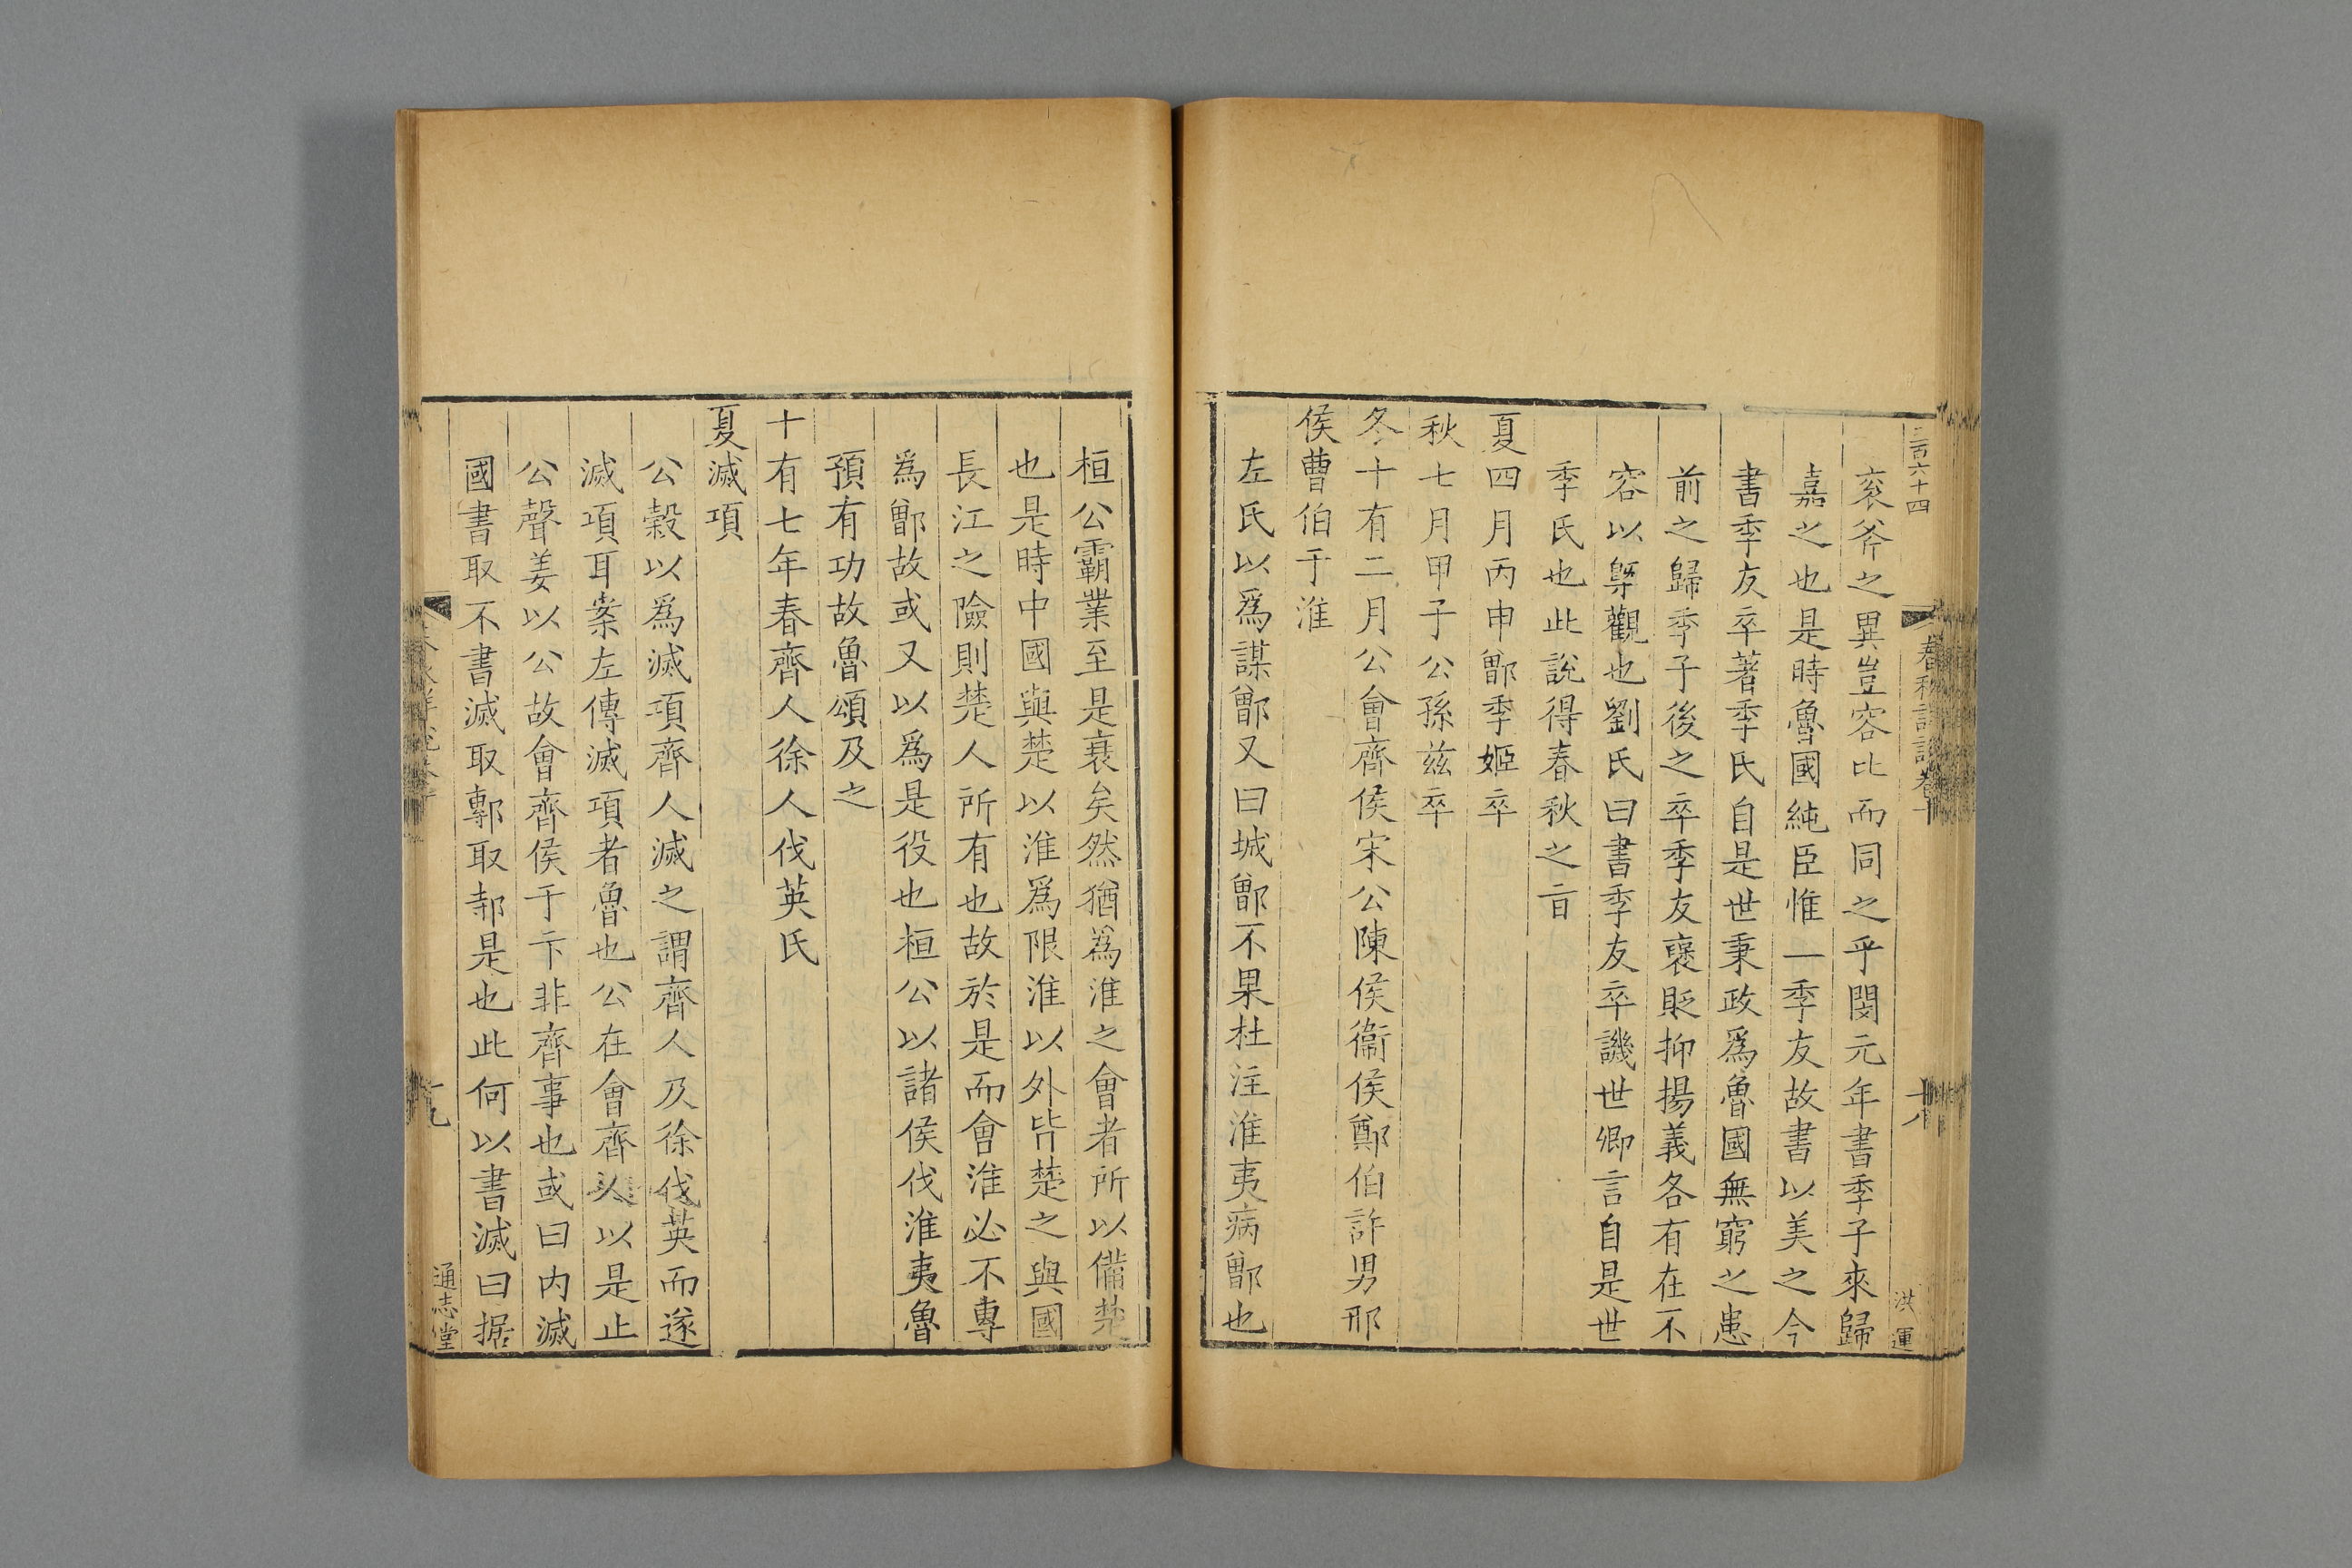 二百六十四
春秋詳說卷十
十八
洪運
衮斧之異豈容比而同之乎閔元年書季子來歸
嘉之也是時魯國純臣惟一季友故書以美之今
書季友卒著季氏自是世秉政爲魯國無窮之患
前之歸季子後之卒季友襃貶抑揚義各有在不
容以槩觀也劉氏曰書季友卒譏世卿言自是世
季氏也此說得春秋之旨
夏四月丙申鄫季姬卒
秋七月甲子公孫兹卒
冬十有二月公會齊侯宋公陳侯衞侯鄭伯許男邢
侯曹伯于淮
左氏以爲謀鄫又曰城鄫不果杜注淮夷病鄫也
桓公霸業至是衰矣然猶爲淮之會者所以備楚
也是時中國與楚以淮爲限淮以外皆楚之與國
長江之險則楚人所有也故於是而會淮必不專
爲鄫故或又以爲是役也桓公以諸侯伐淮夷魯
預有功故魯頌及之
十有七年春齊人徐人伐英氏
夏滅項
公穀以爲滅項齊人滅之謂齊人及徐伐英而遂
滅項耳案左傳滅項者魯也公在會齊人以是止
公聲姜以公故會齊侯于卞非齊事也或曰內滅
國書取不書滅取鄟取邿是也此何以書滅曰据
春秋詳說卷十
十九
通志堂